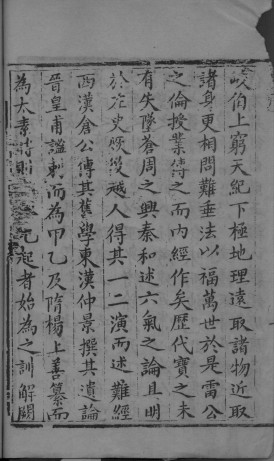 岐伯上窮天紀下極地理遠取諸物近取
諸身更相問難垂法以福萬世於是雷公
之倫授業傳之而内經作矣歷代寶之未
有失墜蒼周之興秦和述六氣之論具明
於左史厥後越人得其一二演而述難經
西漢倉公傳其舊學東漢仲景撰其遺論
晉皇甫謐刺而為甲乙及隋楊上善纂而
為太素時則 元起者始為之訓解闕